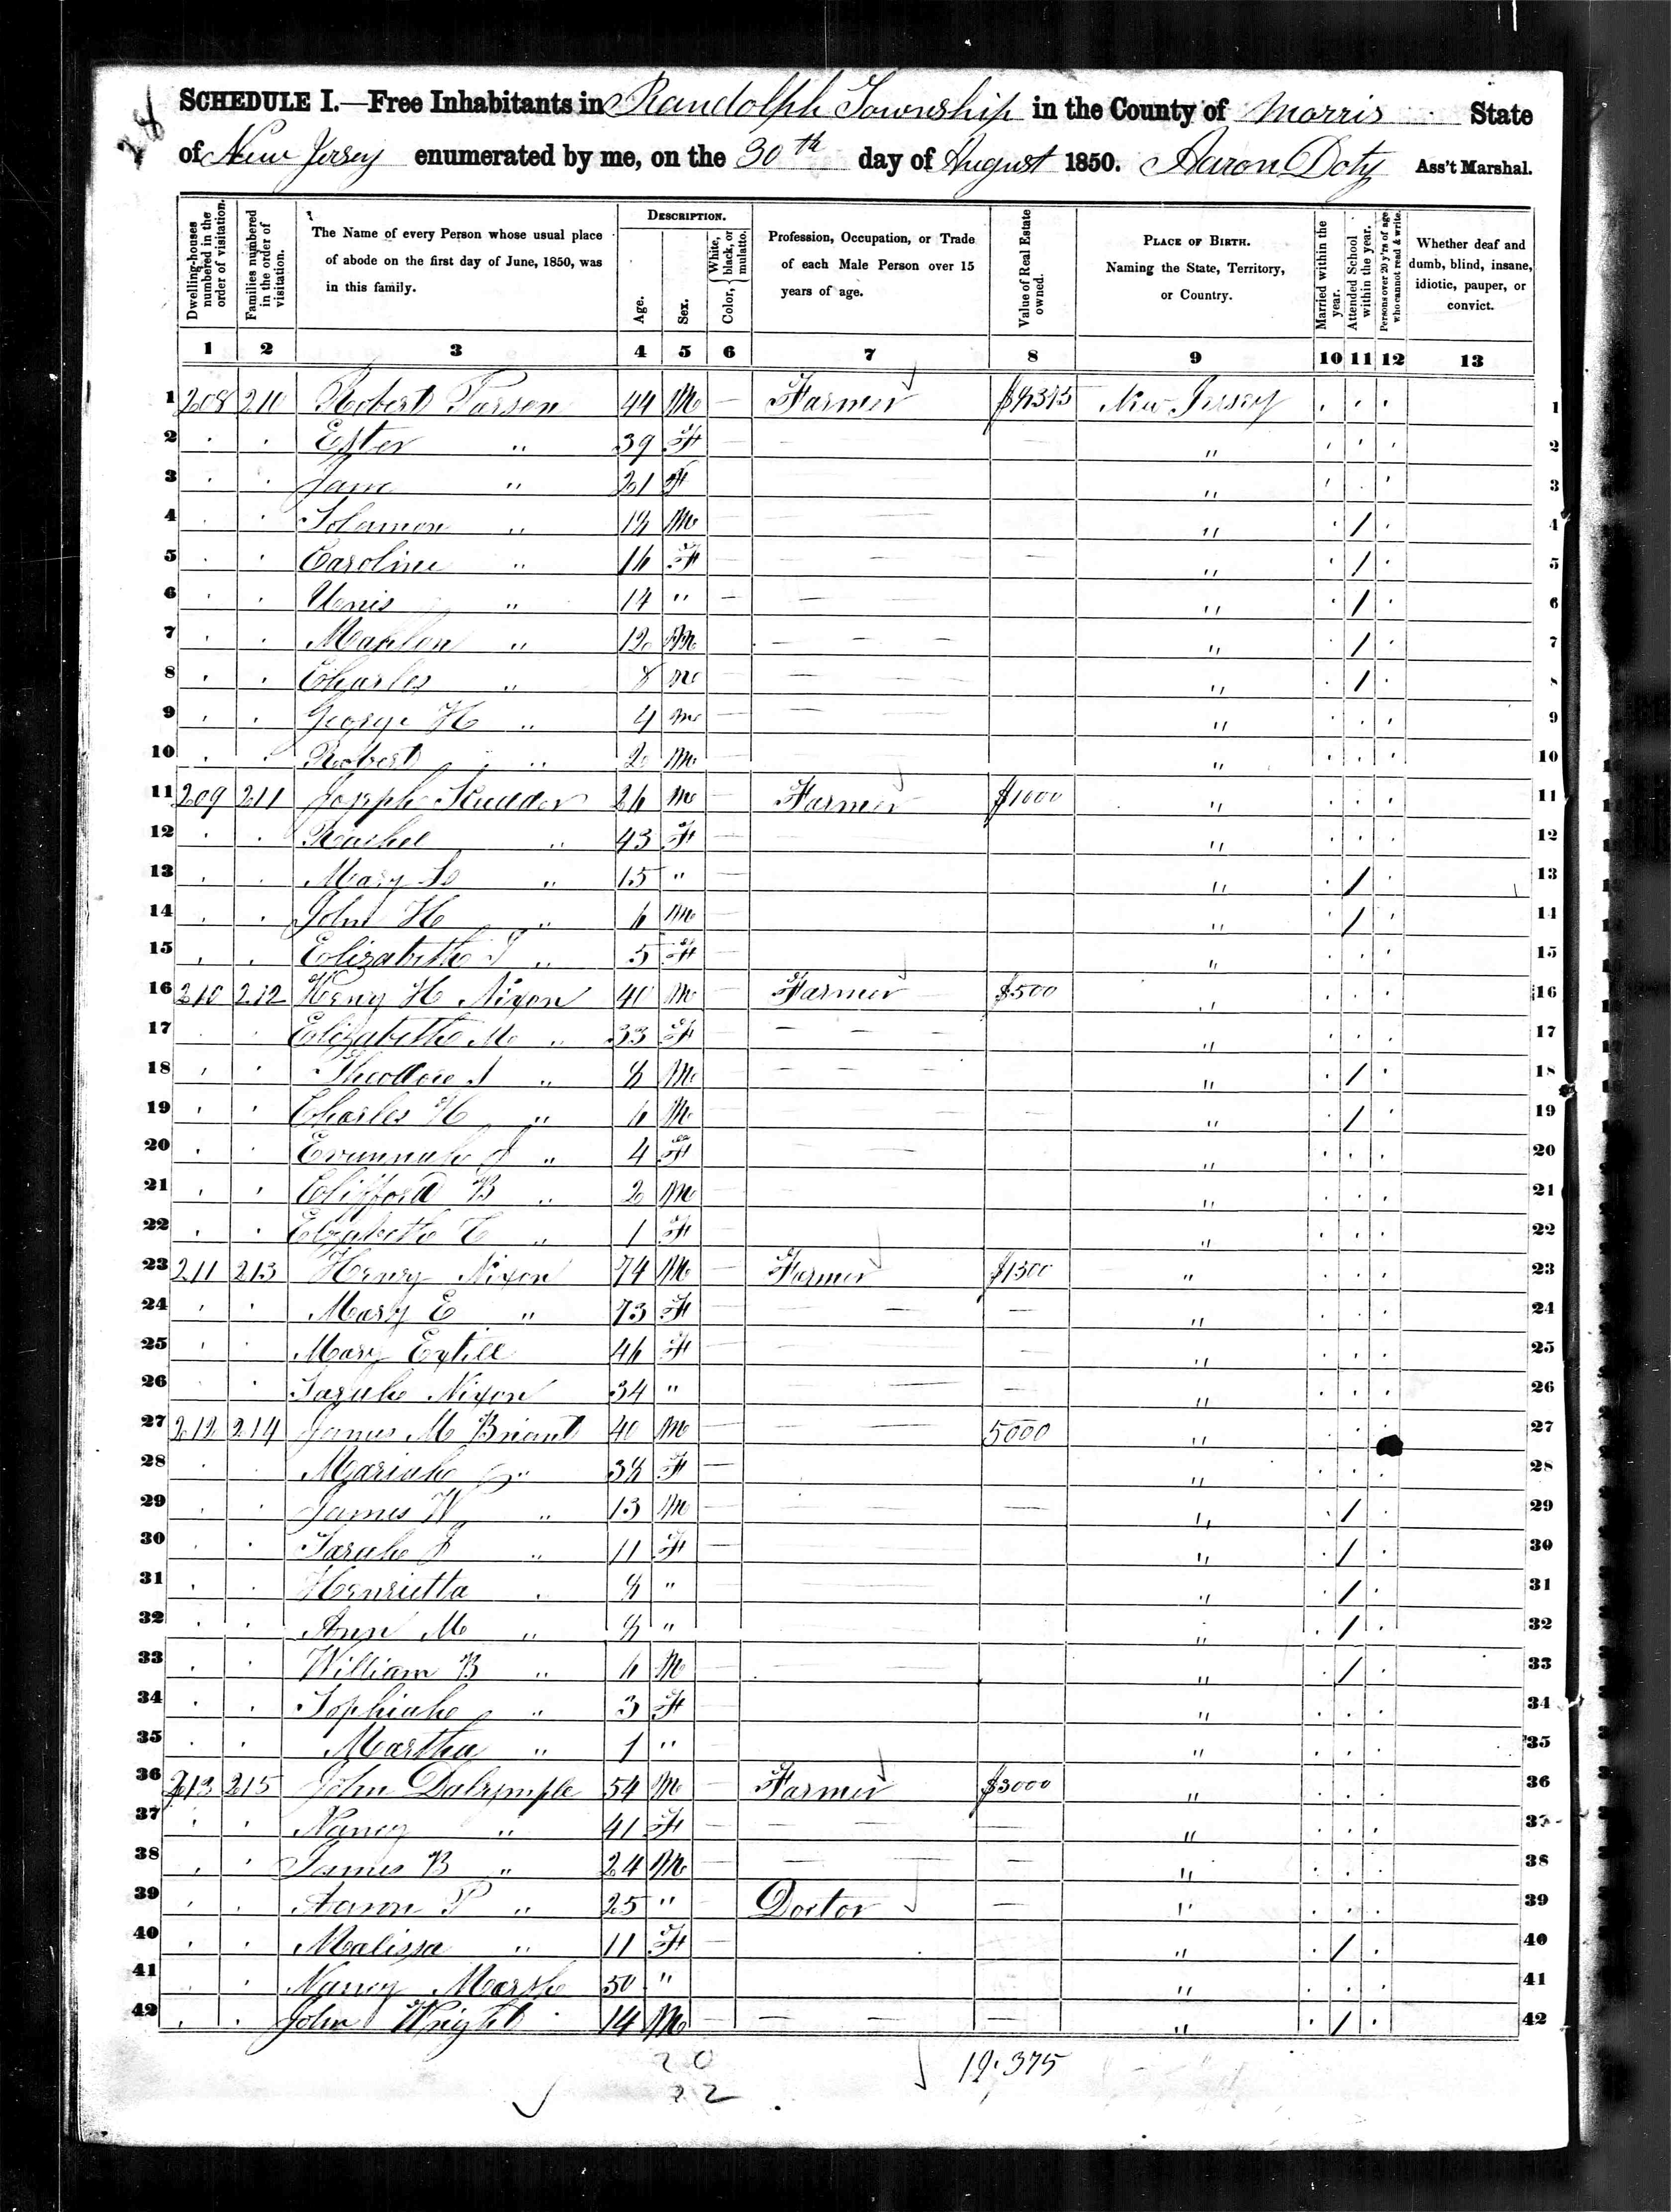 SCHEDULE I.—Free Inhabitants in Randolph Township in the County of Morris State
of New Jersey enumerated by me, on the 30th day of August 1850. Aaron Doty Ass't Marshal.
Dwelling-houses numbered in the order of visitation.
Families numbered in the order of visitation.
The Name of every Person whose usual place of abode on the first day of June, 1850, was in this family.
DESCRIPTION.
Age.
Sex.
Color, { White, black, or mulatto.
Profession, Occupation, or Trade of each Male Person over 15 years of age.
Value of Real Estate owned.
PLACE OF BIRTH. Naming the State, Territory, or Country.
Married within the year.
Attended School within the year.
Persons over 20 y'rs of age who cannot read & write.
Whether deaf and dumb, blind, insane, idiotic, pauper, or convict.
1 2 3 4 5 6 7 8 9 10 11 12 13
1 208 210 Robert 44 M — Farmer New Jersey 1
2 Ester " 39 F — " 2
3 Jane " 21 F " 3
4 Solomon " 18 M — " / 4
5 Caroline " 16 F — " / 5
6 Unis " 14 " — " / 6
7 Mahlon " 12 M " / 7
8 Charles " 8 M — " / 8
9 George H " 4 M — " 9
10 Robert " 2 M — " 10
11 209 211 Joseph Scudder 26 M — Farmer $1000 " 11
12 Rachel " 43 F — " 12
13 Mary " 15 " — " / 13
14 John H " 6 M — " / 14
15 Elizabeth J " 5 F — " 15
16 210 212 Henry H Nixon 40 M — Farmer $500 " 16
17 Elizabeth M " 33 F — " 17
18 Theodore " 8 M — " / 18
19 Charles H " 6 M — " / 19
20 " 4 F — " 20
21 Clifford B " 2 M — " 21
22 Elizabeth C " 1 F — " 22
23 211 213 Henry Nixon 74 M — Farmer $1300 " 23
24 Mary E " 73 F — " 24
25 Mary Extill 46 F — " 25
26 Sarah Nixon 34 " — " 26
27 212 214 James M Briant 40 M — 5000 " 27
28 Mariah " 38 F — " 28
29 James W " 13 M — " / 29
30 Sarah J " 11 F — " / 30
31 Henrietta " 8 " " / 31
32 Ann M " 8 " " / 32
33 William B " 6 M — " / 33
34 Sophiah " 3 F — " 34
35 Martha " 1 " " 35
36 213 215 John Dalrymple 54 M — Farmer $3000 " 36
37 Nancy " 41 F — " 37
38 James B " 24 M — " 38
39 Aaron P " 25 " — Doctor — " 39
40 Malissa " 11 F — " / 40
41 Nancy Marsh 50 " " 41
42 John Wright 14 M — " / 42
20
22
375